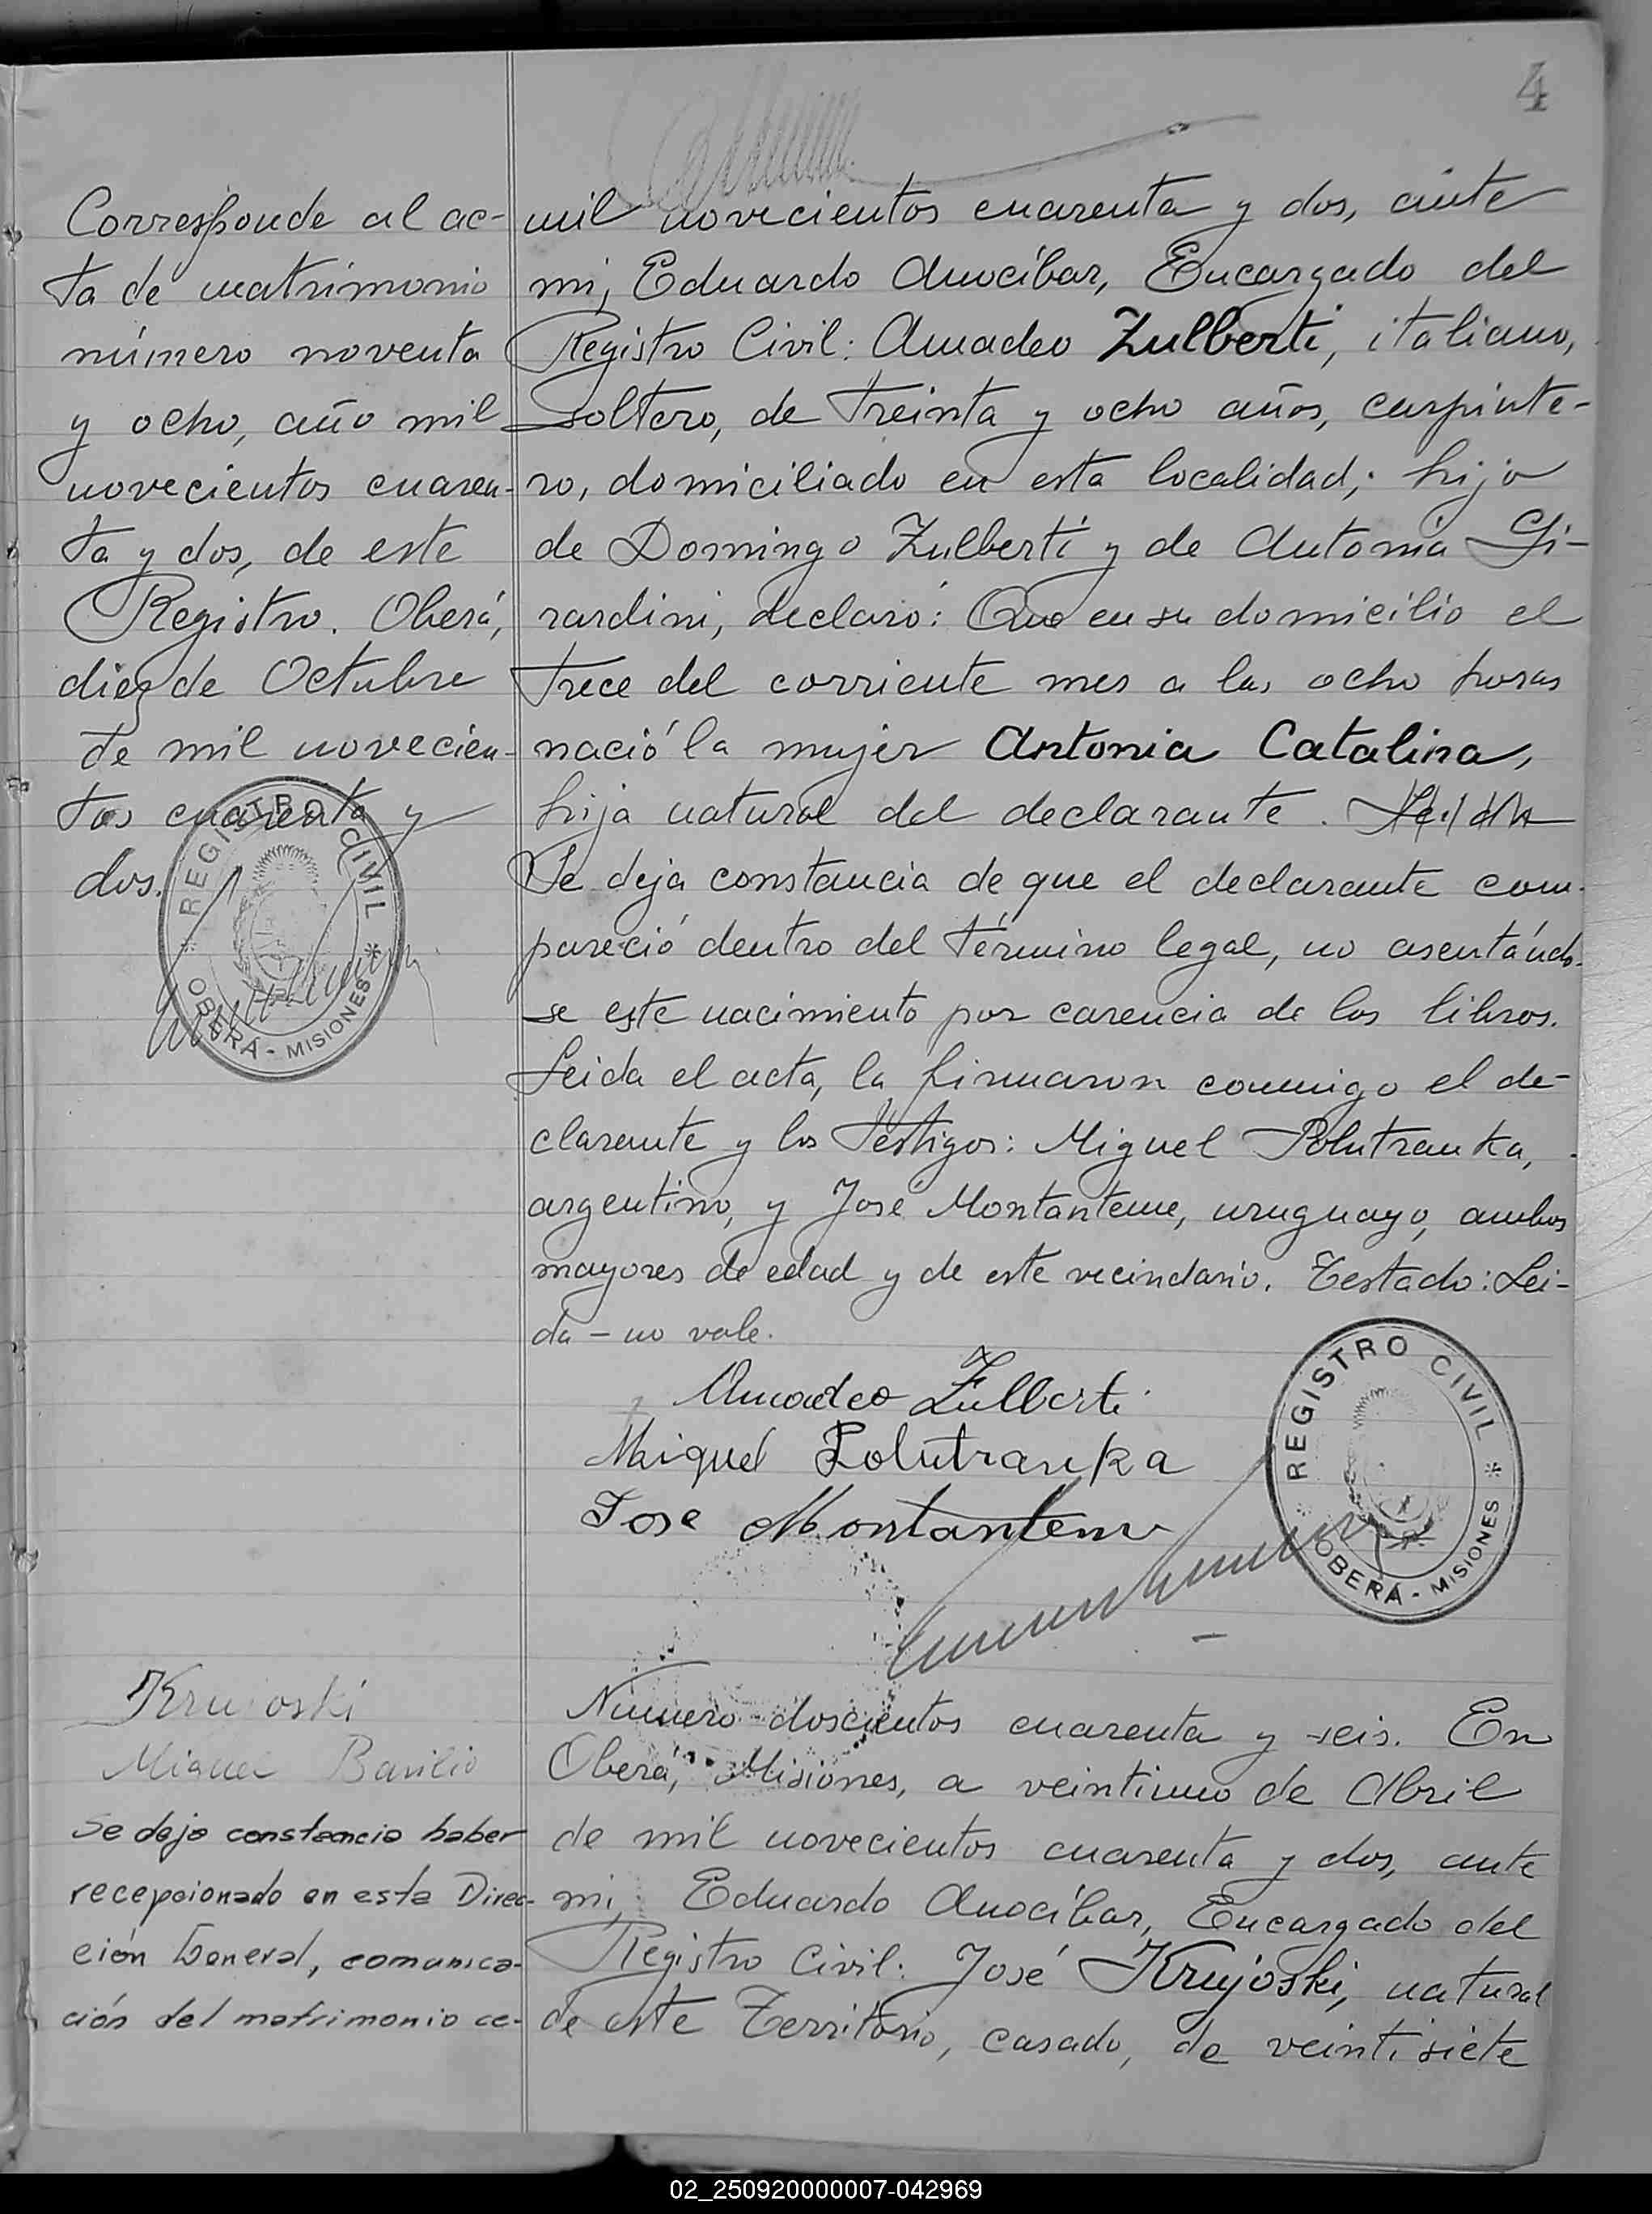 4
Corresponde al ac-
ta de matrimonio
número noventa
y ocho, año mil
novecientos cuaren-
ta y dos, de este
Registro. Oberá,
diez de Octubre
de mil novecien-
tos cuarenta y
dos.
REGISTRO CIVIL
OBERÁ - MISIONES
mil novecientos cuarenta y dos, ante
mi, Eduardo Anocíbar, Encargado del
Registro Civil: Amadeo Zulberti, italiano,
soltero, de treinta y ocho años, carpinte-
ro, domiciliado en esta localidad; hijo
de Domingo Zulberti y de Antonia Gi-
rardini, declaró: Que en su domicilio el
trece del corriente mes a las ocho horas
nació la mujer Antonia Catalina,
hija natural del declarante. Leida
Se deja constancia de que el declarante com-
pareció dentro del término legal, no asentándo-
se este nacimiento por carencia de los libros.
Leida el acta, la firmaron conmigo el de-
clarante y los testigos: Miguel Polutranka,
argentino, y José Montanteme, uruguayo, ambos
mayores de edad y de este vecindario. Testado: Lei-
da - no vale.
Amadeo Zulberti
Miguel Polutranka
Jose Montanteme
REGISTRO CIVIL
OBERÁ - MISIONES
Krujoski
Miguel Basilio
Se deja constancia haber
recepcionado en esta Direc-
ción General, comunica-
ción del matrimonio ce-
Numero doscientos cuarenta y seis. En
Oberá, Misiones, a veintiuno de Abril
de mil novecientos cuarenta y dos, ante
mi, Eduardo Anocíbar, Encargado del
Registro Civil: José Krujoski, natural
de este Territorio, casado, de veintisiete
02_250920000007-042969